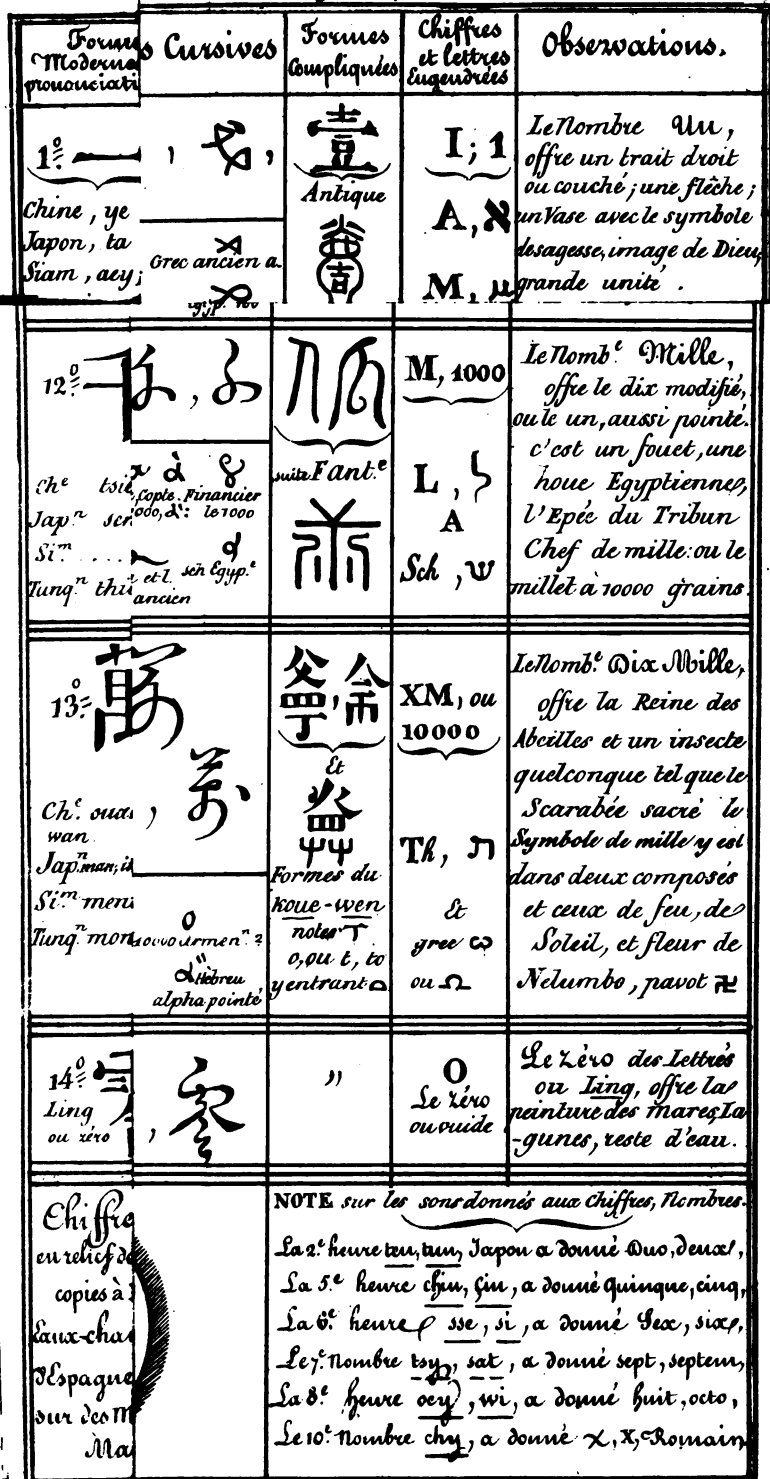 Formes Cursives
Moderne
Formes
Compliquées
Chiffres
et lettres
Engendrées
Observations.
1º
一
Chine, ye
Japon, ta
Siam, aey;
Grec ancien a.
壹
Antique
I; 1
A, א
M, μ
Le Nombre Un,
offre un trait droit
ou couché; une flêche;
un Vase avec le symbole
de sagesse, image de Dieu,
grande unité.
12º
Chᵉ
Japⁿ
Siᵐ . . . .
Tunqⁿ
Copte. Financier
le 1000
et l. sch Egyp.ᵉ
ancien
suite Fant.ᵉ
M, 1000
L, ל
A
Sch, ש
Le Nomb.ᵉ Mille,
offre le dix modifié,
ou le un, aussi pointé.
c'est un fouet, une
houe Egyptienne,
l'Epée du Tribun
Chef de mille: ou le
millet à 10000 grains.
13º
萬
Chᵉ.
wan
Japⁿ
Siᵐ
Tunqⁿ
10000 armenⁿ ?
Hébreu
alpha pointé
Et
Formes du
koue-wen
notes
o, ou t, to
y entrant
XM, ou
10000
Th, ת
Et
grec ω
ou Ω
Le Nomb.ᵉ Dix Mille,
offre la Reine des
Abeilles et un insecte
quelconque tel que le
Scarabée sacré le
Symbole de mille y est
dans deux composés
et ceux de feu, de
Soleil, et fleur de
Nelumbo, pavot 卍
14º
Ling
ou zéro
, 零
"
O
Le zéro
ou vuide
Le zéro des Lettrés
ou Ling, offre la
peinture des mares, La
-gunes, reste d'eau.
Chiffre
en relief de
copies à
d'Espagne
sur des M
Ma
NOTE sur les sons donnés aux Chiffres, Nombres.
La 2.ᵉ heure teu, tun, Japon a donné Duo, deux,
La 5.ᵉ heure chin, çin, a donné Quinque, cinq,
La 6.ᵉ heure sse, si, a donné Sex, six,
Le 7.ᵉ Nombre tsy, sat, a donné sept, septem,
La 8.ᵉ heure oey, wi, a donné huit, octo,
Le 10.ᵉ Nombre chy, a donné χ, X, Romain